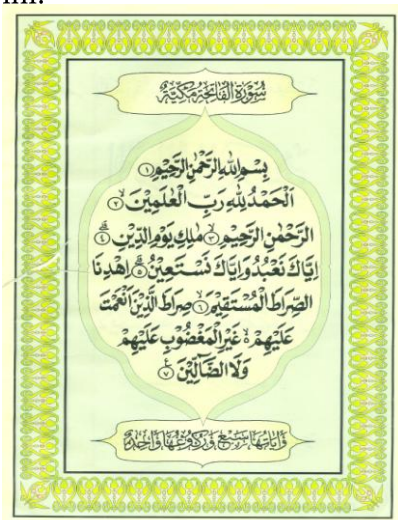 سُوْرَةُ الْفَاتِحَةِ مَكِّيَّةٌ
بِسْمِ اللهِ الرَّحْمٰنِ الرَّحِيْمِ ۝١
اَلْحَمْدُ لِلّٰهِ رَبِّ الْعٰلَمِيْنَ ۝٢
الرَّحْمٰنِ الرَّحِيْمِ ۝٣ مٰلِكِ يَوْمِ الدِّيْنِ ۝٤
اِيَّاكَ نَعْبُدُ وَاِيَّاكَ نَسْتَعِيْنُ ۝٥ اِهْدِنَا
الصِّرَاطَ الْمُسْتَقِيْمَ ۝٦ صِرَاطَ الَّذِيْنَ اَنْعَمْتَ
عَلَيْهِمْ غَيْرِ الْمَغْضُوْبِ عَلَيْهِمْ
وَلَا الضَّآلِّيْنَ ۝٧
وَاٰيَاتُهَا سَبْعٌ وَرُكُوْعُهَا وَاحِدٌ